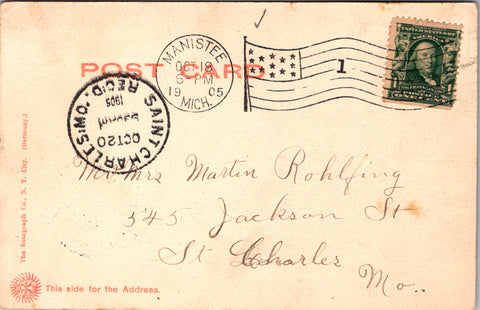 POST CARD
MANISTEE
OCT 18
6 PM
19 05
MICH.
1
UNITED STATES OF AMERICA
1 1
ONE CENT
SAINT CHARLES, MO.
OCT 20
1905
REC'D.
Mr. Mrs Martin Rohlfing
545 Jackson St
St Charles
Mo.
The Rotograph Co., N. Y. City. (Germany.)
This side for the Address.